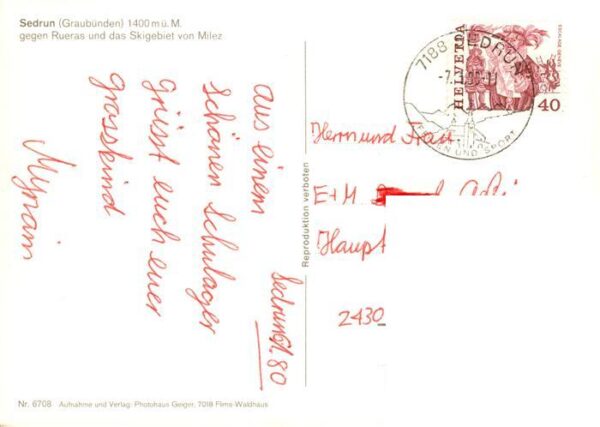 Sedrun (Graubünden) 1400 m ü. M.
gegen Rueras und das Skigebiet von Milez
Sedrun 80
aus einem
schönen Schulager
grüsst euch euer
grosskind
Myriam
7188 SEDRUN
FERIEN UND SPORT
HELVETIA
40
Herrn und Frau
E+M
Haupt
2430
Reproduktion verboten
Nr. 6708 Aufnahme und Verlag: Photohaus Geiger, 7018 Flims-Waldhaus